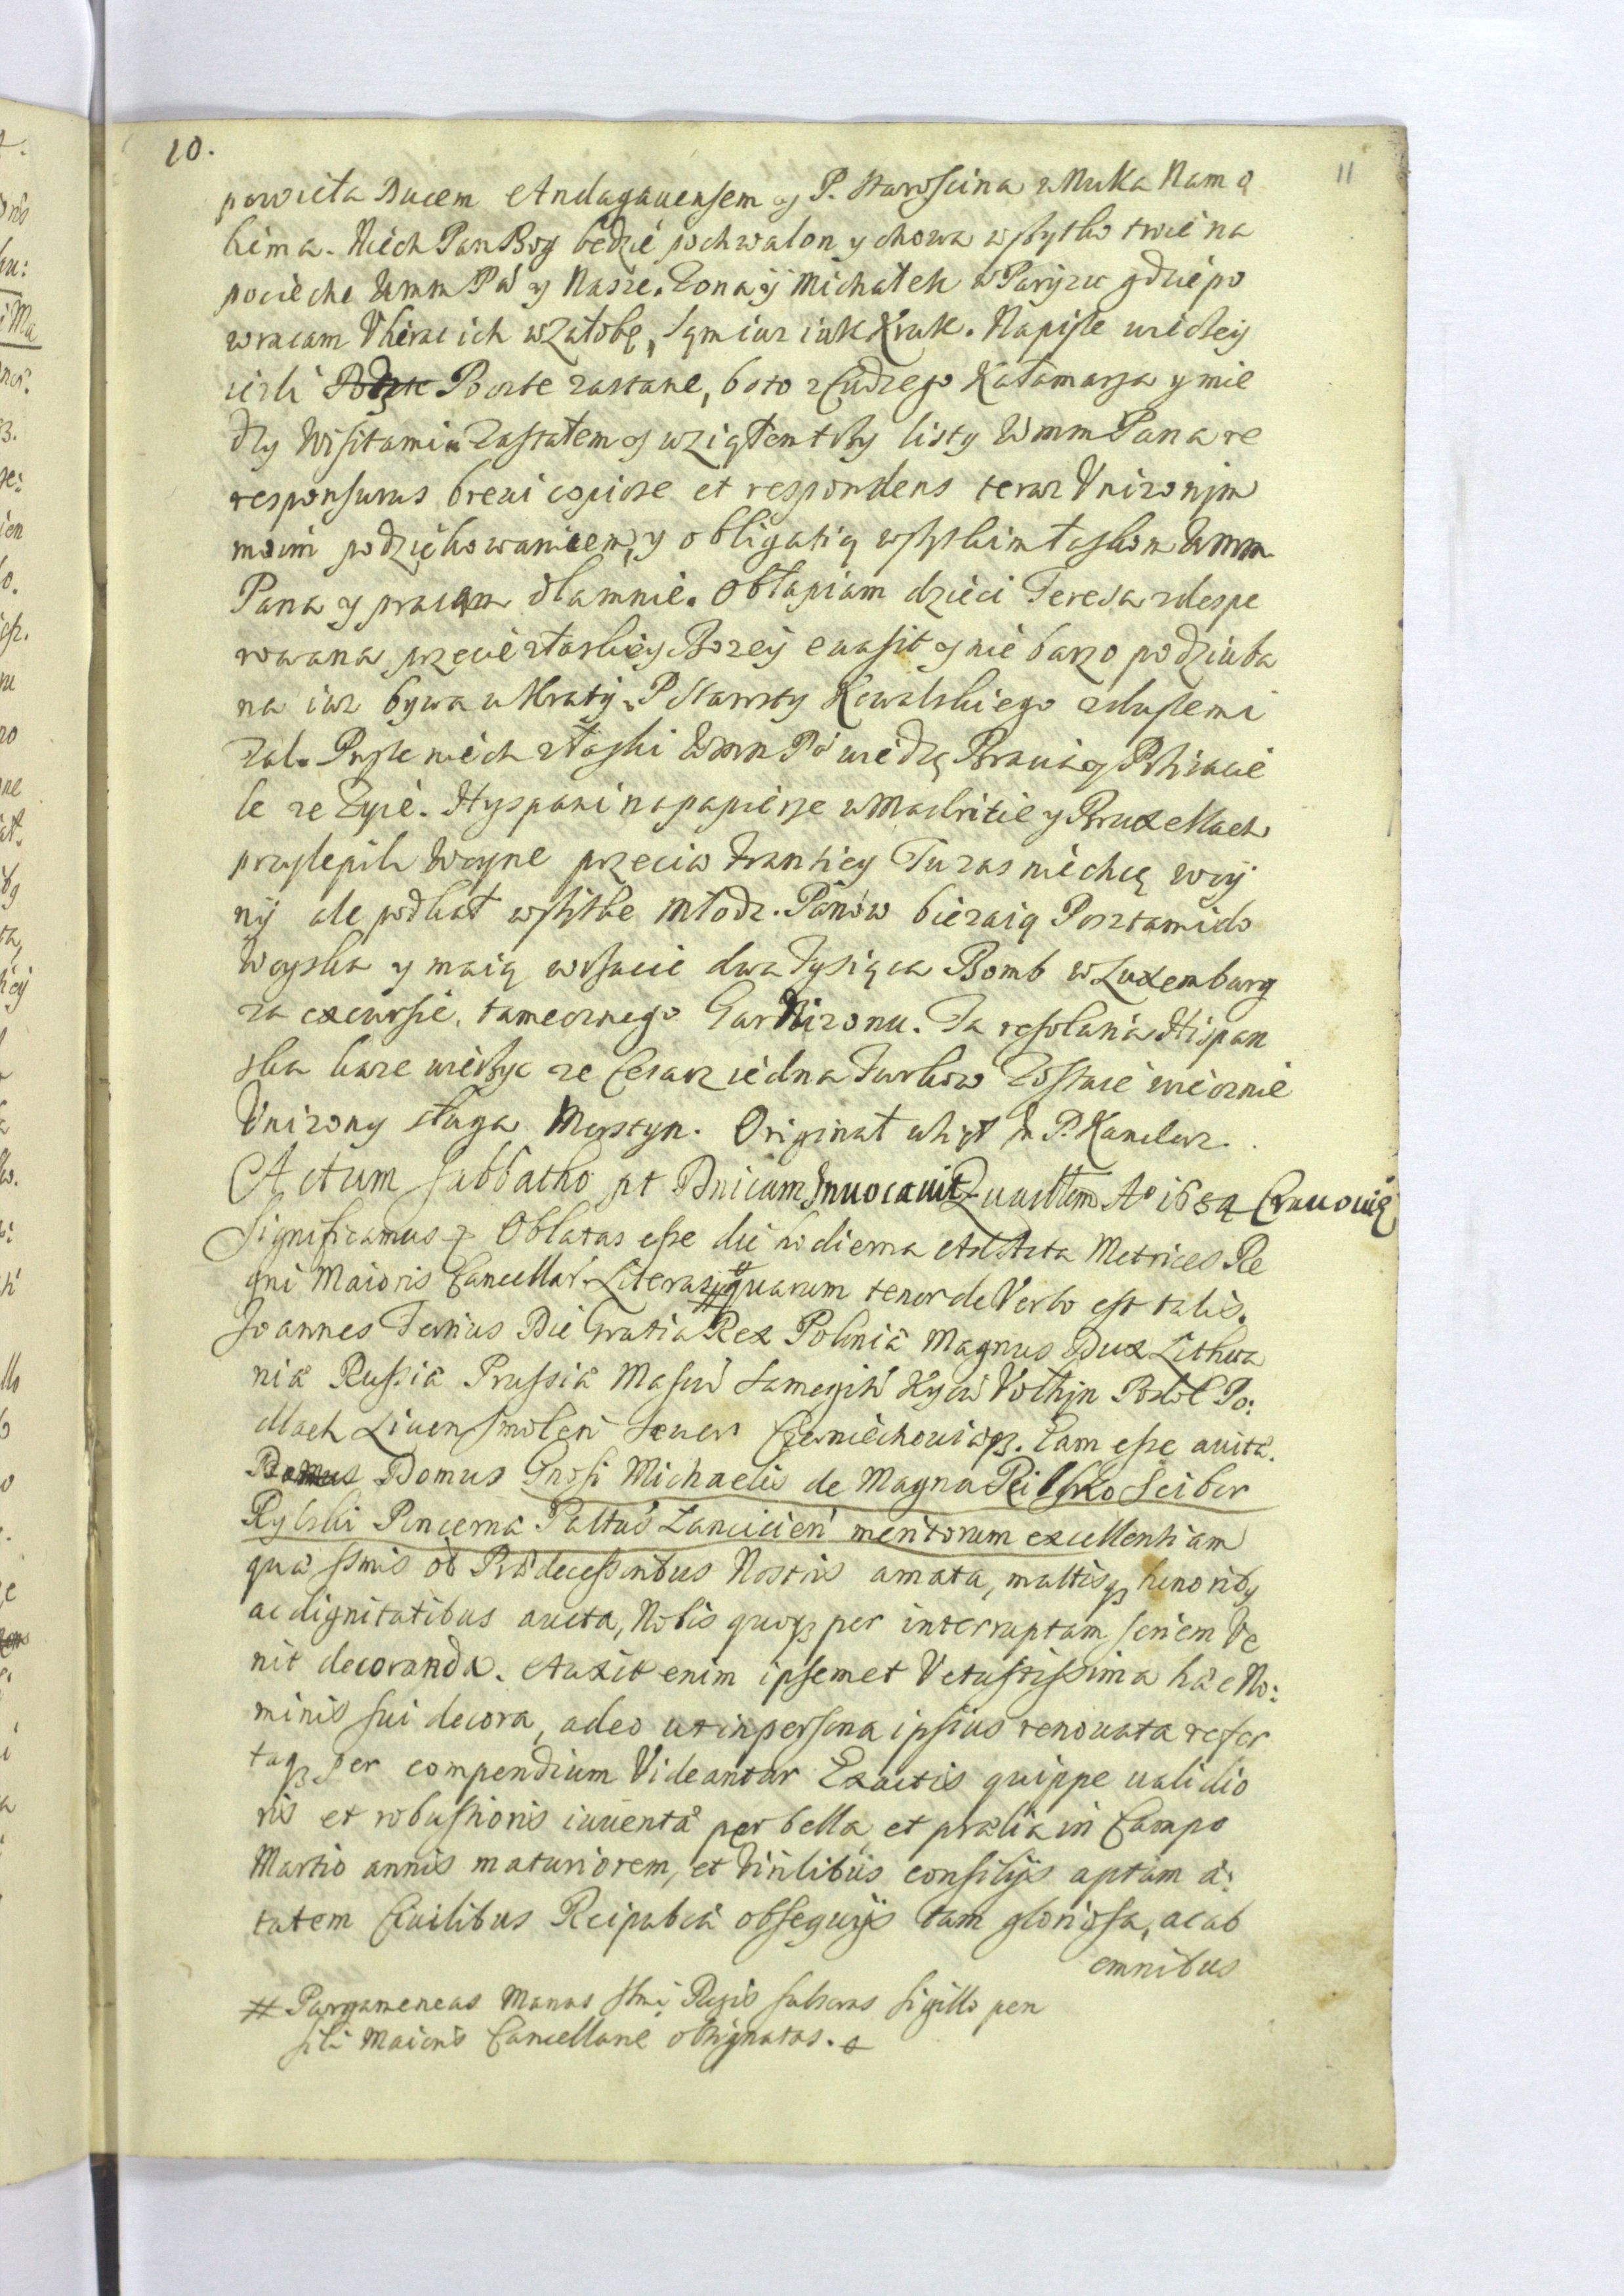 10.
11
powieta Ducem Andagauensem y P. Starościna wnuka Nam o
hima. Niech Pan Bog bedzie pochwalon y chowa wszytko twie na
pocieche Wmm Pa y Nasze. Zona y Michałek w Paryzu gdzie po
wracam Vbierac ich w Załobę, Sąm iuz iak Kruk. Napisze wiecey
iezli Poczte zastane, boto z Cudzego Kałamarza y mie
dzy Wisitami Zastałem y wziąłem trzy listy Wmm Pana re
responsurus breui copiose et respondens teraz Vnizonym
moim podziękowaniem, y obligatią wszytkim łaskom Wmm
Pana y pracom dlamnie. Obłapiam dzieci Teresa zdespe
rowana przecie złaskiey Bozey euasit y nie barzo podziuba
na iuz bywa u Kraty. P Starosty Kowalskiego zduszemi
zal. Pisze niech złaski Wmm Pa wiedzą Bracia y Przyiacie
le ze Zyie. Hyspani napapierze w Madritie y Bruxellach
przylepili Woyne przeciw Frantiey Tu zas niechcą woy
ny ale podkał wszytke młodz. Panow biezaią Posztami do
Woyska y maią wrzucic dwa Tysiąca Bomb w Luxemburg
za excursie, tamecznego Garnizonu. Ta resolutia Hispan
ska kaze wierzyc ze Cesarz iedna Turkow Zostaie wiecznie
Vnizony sługa Morstyn. Originał wziął Im P. Kanclerz.
Actum Sabbatho pt Dnicam Invocavit Quadtem Ao 1684 Cracouię
Significamus & Oblatas esse die hodierna Ad Acta Metrices Re
gni Maioris Cancellar. Literas # quarum tenor de Verbo est talis.
Joannes Tertius Dei Gratia Rex Polonia Magnus Dux Lithua
nia Russia Prussia Masou Samogit Kyou Volhyn Podol Po:
dlach Liuon Smolen Seuer Czerniechouiaq. Eam esse auita.
Domus Domus Gnosi Michaelis de Magna Rilsko Scibor
Rylski Pincerna Palttus Lancicien meritorum excellentiam
qua ssmis ob Prædecessoribus Nostris amata, multisq honoriby
ac dignitatibus aucta, Nobis quoq per interruptam seriem Ve
nit decoranda. Auxit enim ipsemet Vetustissima hæc No:
minis sui decora, adeo ut in persona ipsius renouata refer
taq per compendium Videantur Exactis quippe ualidio
ris et robustioris iuuenta per bella et prælia in Campo
Martio annis maturiorem, et Virilibus consilijs aptam a:
tatem Ciuilibus Reipubca obsequijs tam gloriosa, ac ab
omnibus
# Pargameneas Manu Smi Regis subscras sigillo pen
sili Maioris Cancellarie obsignatas.